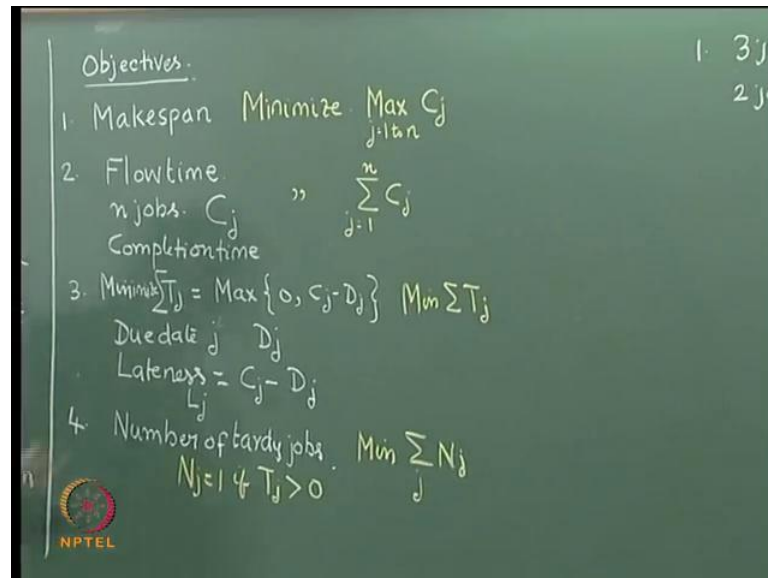 Objectives.
1. Makespan Minimize Max C_j
j=1 to n
2. Flowtime
n jobs. C_j " n∑j=1 C_j
Completiontime
3. Minimize ∑T_j = Max {0, C_j - D_j} Min ∑T_j
Duedate j D_j
Lateness = C_j - D_j
L_j
4. Number of tardy jobs. Min ∑j N_j
N_j = 1 if T_j > 0
1. 3 j
2 j
NPTEL